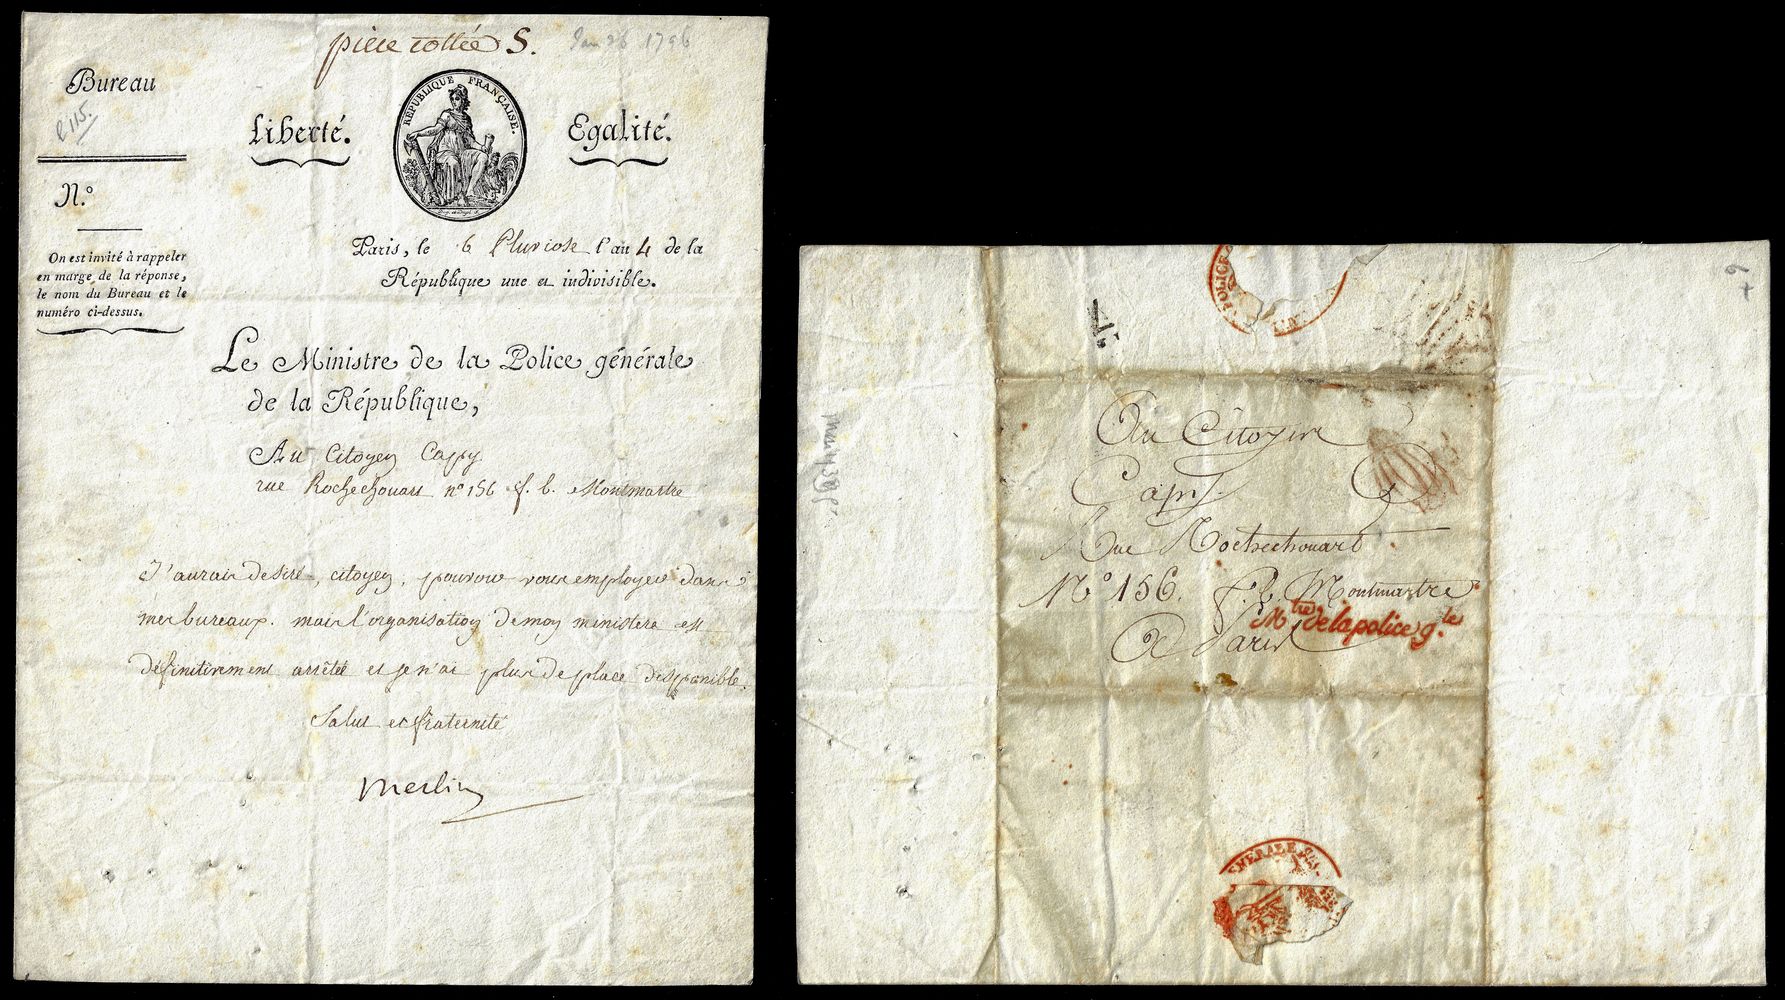 pièce cottée S. Jan 26 1796
Bureau
C 115.
Liberté. Egalité.
RÉPUBLIQUE FRANÇAISE.
N.º
On est invité à rappeler
en marge de la réponse,
le nom du Bureau et le
numéro ci-dessus.
Paris, le 6 Pluviose l'an 4 de la
République une et indivisible.
Le Ministre de la Police générale
de la République,
Au Citoyen Capy
rue Rochechouart nº 156 f. b. Montmartre
J'aurais desiré, citoyen, pouvoir vous employer dans
mes bureaux. mais l'organisation de mon ministere est
définitivement arrêtée et je n'ai plus de place disponible.
Salut et fraternité
Merlin
POLICE
Au Citoyen
Capy.
Rue Rochechouart
Nº 156. f. b. Montmartre
M.tre de la police g.le
A Paris
NERALE